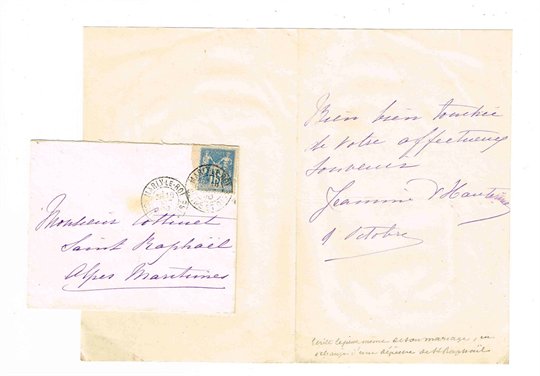 Bien bien touchée
de votre affectueux
souvenir
Jeannine d'Hauterive
9 Octobre
Ecrit le jour même de son mariage, en
échange d'une dépêche de St Raphaël
MARLY-LE-ROI
15
Monsieur Cottinet
Saint Raphaël
Alpes Maritimes